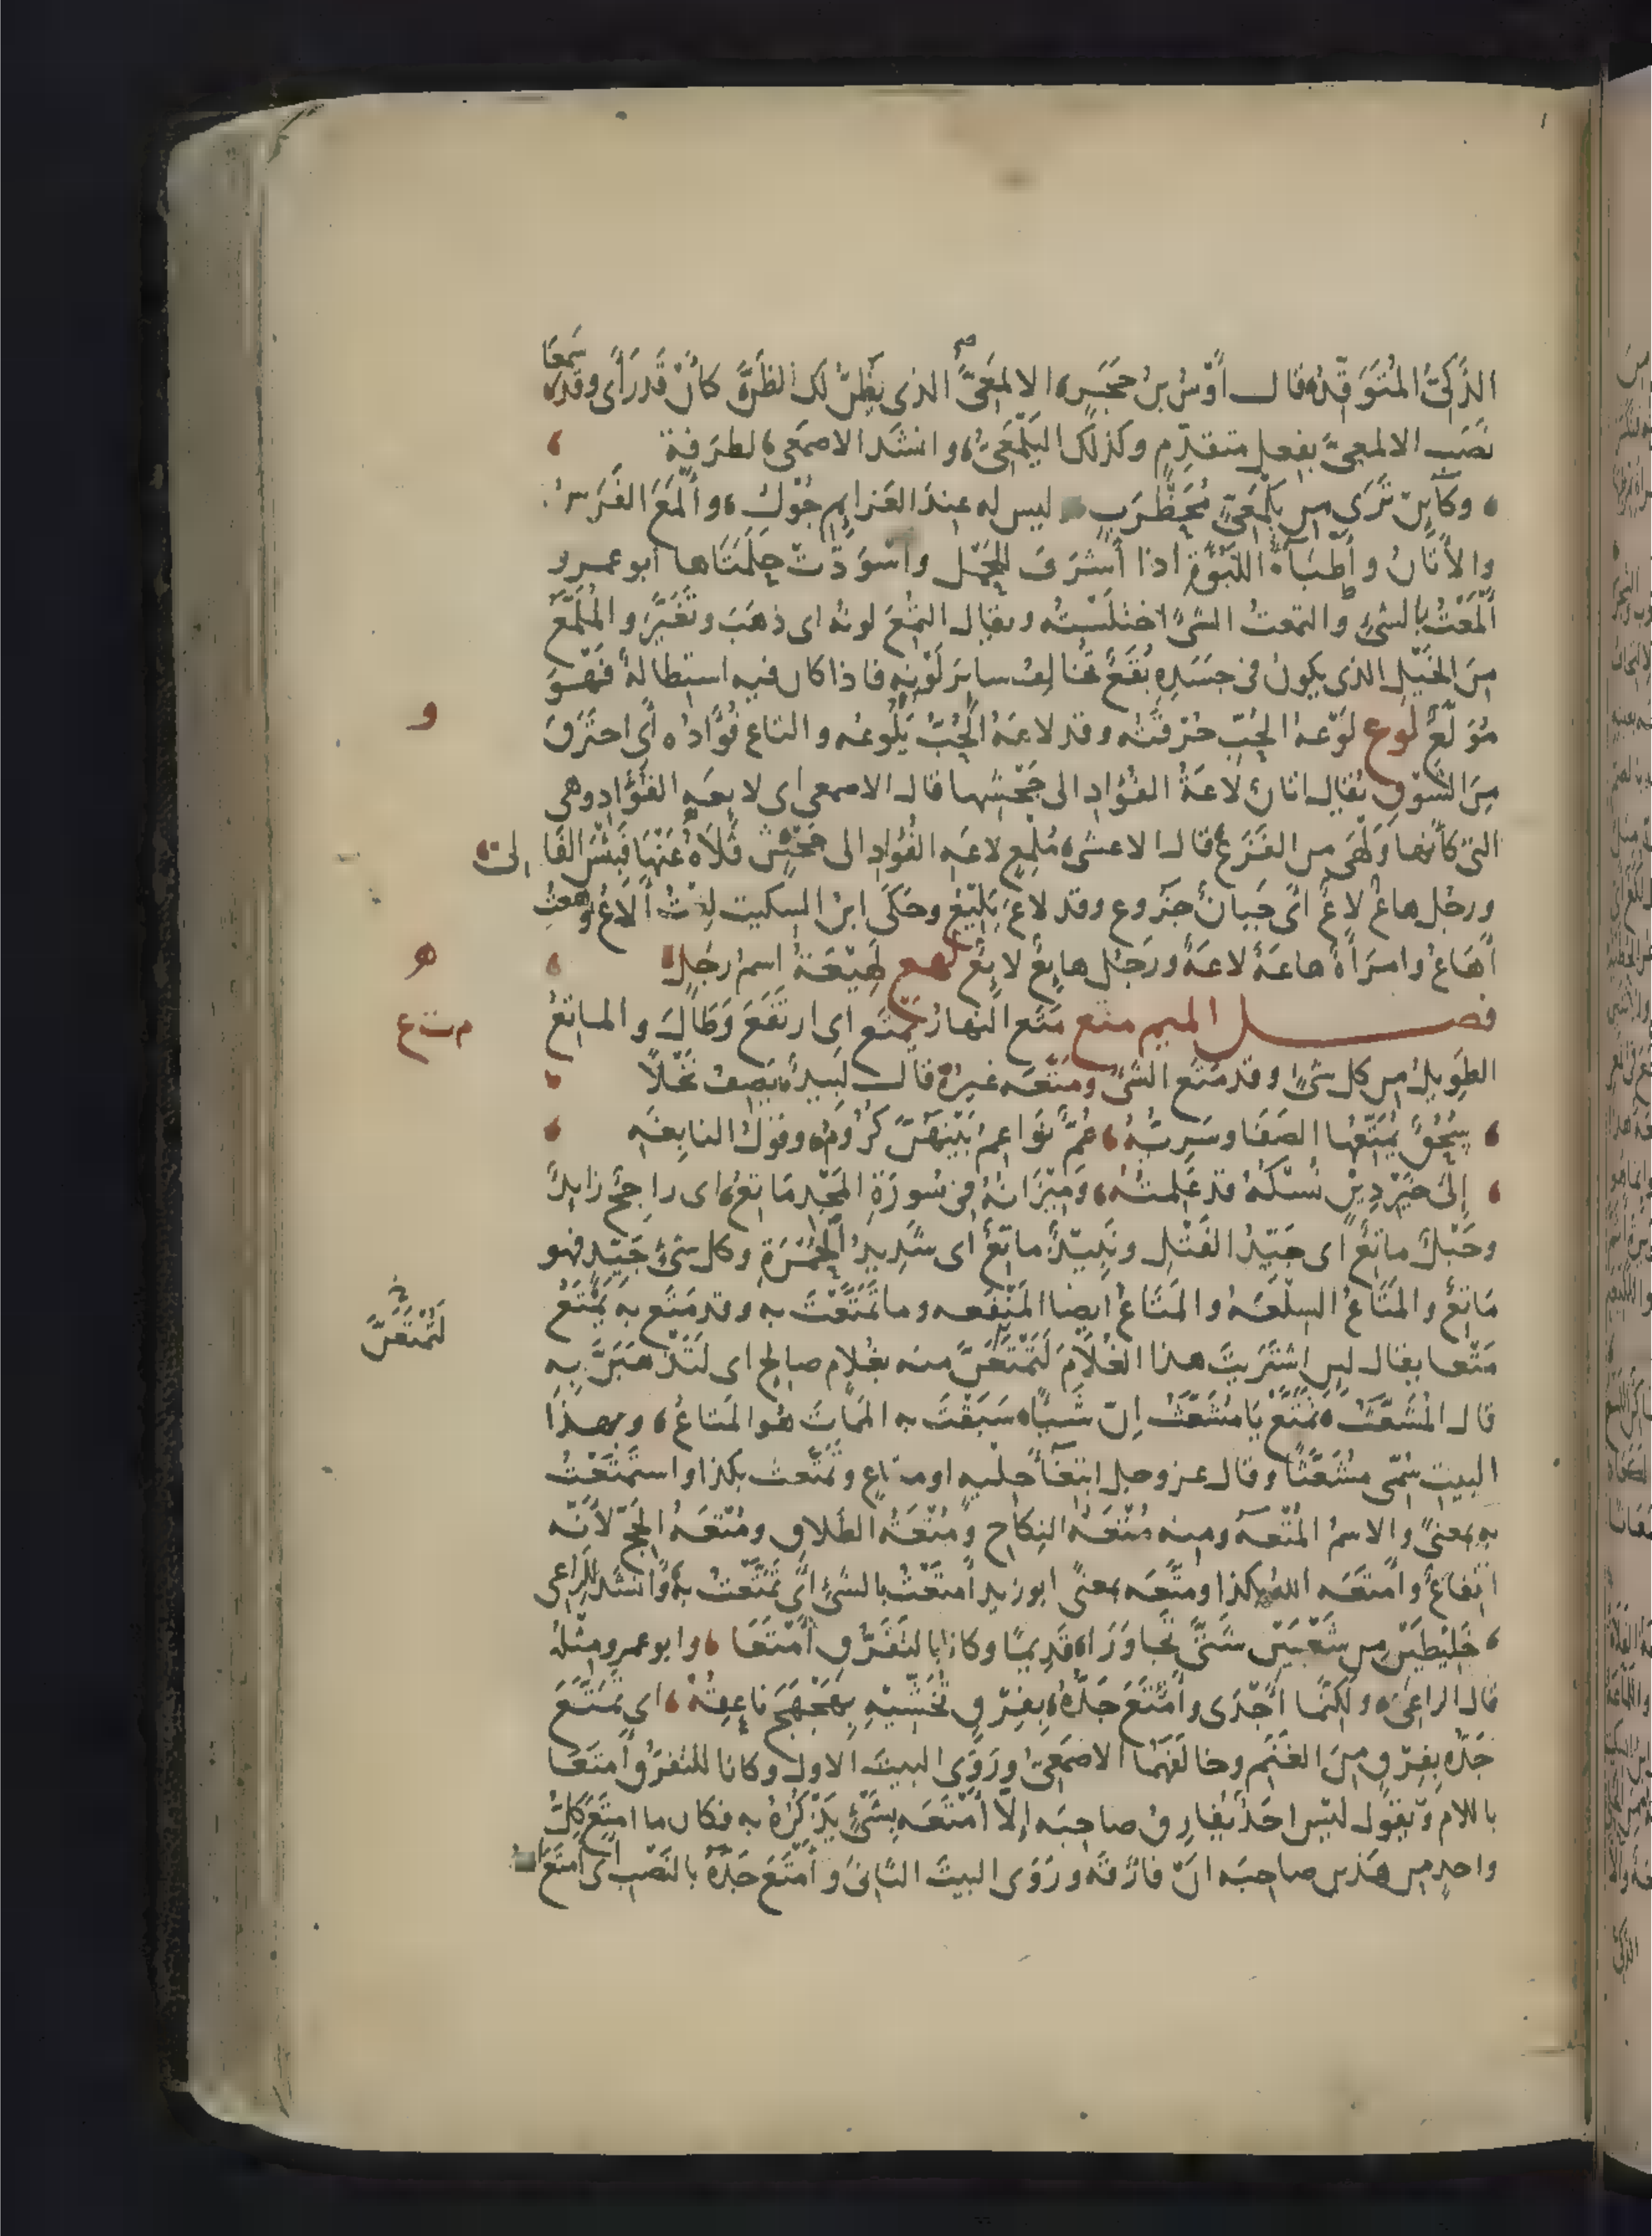 الذَّكِىُّ المُتَوَقِّدُ قال أَوْسُ بنُ حَجَرٍ، الالمَعِىَّ الذى يَظُنُّ لك الظَنَّ كأَنْ قَدْ رَأَى وقد سَمِعَا
نَصَب الالمعىَّ بفعلٍ متقدِّمٍ وكذلك اليَلْمَعِىُّ، وانشد الاصمعى، لطرفة
وكآئِنْ تَرَى من يَلْمَعِىٍّ مُحَظْرَبٍ وليس له عند العَزَايِمِ جُوْلُ، وأَلْمَعَ الفَرَسُ
والأَتَانُ وأَطْبَآءُ اللَّبُؤَةِ اذا أَشْرَفَ للحَمْلِ واسْوَدَّتْ حَلَمَتَاها ابو عمرو
أَلْمَعْتُ بالشئِ والتمعتُ الشئَ اختلَسْتُه ويقال التُمِعَ لونُه اى ذهَبَ وتَغَيَّرَ والمُلَمَّعُ
مِنَ الخَيْلِ الذى يكونُ فى جَسَدِهِ بُقَعٌ تخالِفُ سايرَ لَوْنِهِ فاذا كان فيه استِطالةٌ فَهُوَ
مُوَلَّعٌ لوع لَوْعةُ الحُبِّ حُرْقَتُه وقد لاعَهُ الحُبُّ يَلُوعُه والتاع فُؤَادُه أى احتَرَقَ
مِنَ الشَوْقِ يُقال اتانٌ لاعَةُ الفُؤَادِ الى جَحْشِها قال الاصمعى اى لايعة الفُؤَادِ وهى
التى كأنها وَلْهَى من الفَزَعِ قال الاعشى، مُلْمِعٍ لاعَةِ الفُؤَادِ الى جَحْشٍ فَلَاهُ عَنْهَا فَبِئْسَ الفَالى
ورجُل هاعٌ لاعٌ أى جَبانٌ جَزُوع وقد لاعَ يَلِيْعُ وحَكَى ابنُ السكيت لِعْتُ أَلَاعُ وهِعْتُ
أَهَاعُ وامرَأَةٌ هاعَةٌ لاعَةٌ ورَجُل هايِعٌ لايِعٌ لهع لَهِيْعَةُ اسمُ رَجُلٍ
فصل الميم متع مَتَع النهارُ يَمْتَع اى ارتَفَعَ وَطَالَ والماتِعُ
الطويلُ من كل شئٍ وقد مَتَعَ الشئُ ومَتَّعَه غيرُهُ قال لَبِيدٌ يَصِفُ نَخْلًا
سُحُقٌ يُمَتِّعُها الصَفَا وسَرِيُّهُ، عُمٌّ نَوَاعِمُ بَيْنَهُنَّ كُرُومُ، وقولُ النابِغَةِ
إلى خيرِ دِيْنٍ نُسْكُهُ قد عَلِمتُهُ، وَمِيْزَانُهُ فى سُورَةِ المَجْدِ مَاتِعُ، اى راجِحٌ زايدٌ
وحَبْلٌ ماتِعٌ اى جَيِّدُ الفَتْلِ ونَبِيْذٌ ماتِعٌ اى شَدِيدُ الحُمْرَةِ وكل شئٍ جَيّد فهو
مَاتِعٌ والمَتَاعُ السِلْعَةُ والمَتَاعُ ايضا المَنْفَعه وما تَمَتَّعْتَ به وقد مَتَع به يَمْتَعُ
مَتْعا يقال لين اشْتَرَيتَ هذا الغُلَامَ لَتَمْتَعَنَّ منه بغُلامٍ صالحٍ اى لَتَذْهَبَنَّ بِهِ
قال المُشَعَّثُ، تَمَتَّعْ يَا مُشَعَّثُ إنّ شَيْئًا، سَبَقْتَ به المَمَاتَ هُو المَتاعُ، وبهذا
البيت سُمّى مشَعَّثًا وقال عز وجل ابتغآءَ حِلْيةٍ او متاعٍ وتَمَتَّعت بكذا واستَمْتَعْتُ
به بمعنىً والاسمُ المُتْعهُ ومنه مُتْعَةُ النِكاح ومُتْعَةُ الطَلاق ومُتْعَةُ الحَجّ لأَنَّه
انتِفاعٌ وأَمتَعَه اللهُ بكذا ومتَّعَه بمعنًى ابو زيد أَمتَعْتُ بالشئِ أى تَمَتَّعْتُ به وأَنْشَدَ للراعى
خَلِيْطَيْنِ من شَعْبَيْنِ شَتَّى تَجاوَرَا، قَدِيمًا وكانا بالتَفَرُّقِ أَمْتَعَا، وابو عمرو مِثْلُه
قال الراعى، ولكنَّما أَجْدَى وأَمْتَعَ جَدُّهُ، بِفِرْقٍ يُخَشِّيْهِ بِهَجْهَجَ ناعِقُهْ، اى تَمَتَّعَ
جَدُّه بِفِرْقٍ مِنَ الغَنَمِ وخالَفَهُمَا الاصْمَعِىُّ ورَوَى البيتَ الاول وكانا للتفَرُّقِ أَمتَعَا
باللام ويَقُول لَيْسَ احَدٌ يُفارِقُ صاحِبَه إلّا أَمْتَعَه بشَئٍ يَذْكُرُهُ به فكان ما امتَعَ كلُّ
واحدٍ من هذين صاحِبَه انْ فارَقَه ورَوَى البيتَ الثانىَ وأَمْتَعَ جَدَّهُ بالنَصْبِ اى أَمتَعَ
و
ه
م ت ع
لَتُمْتَعَنَّ